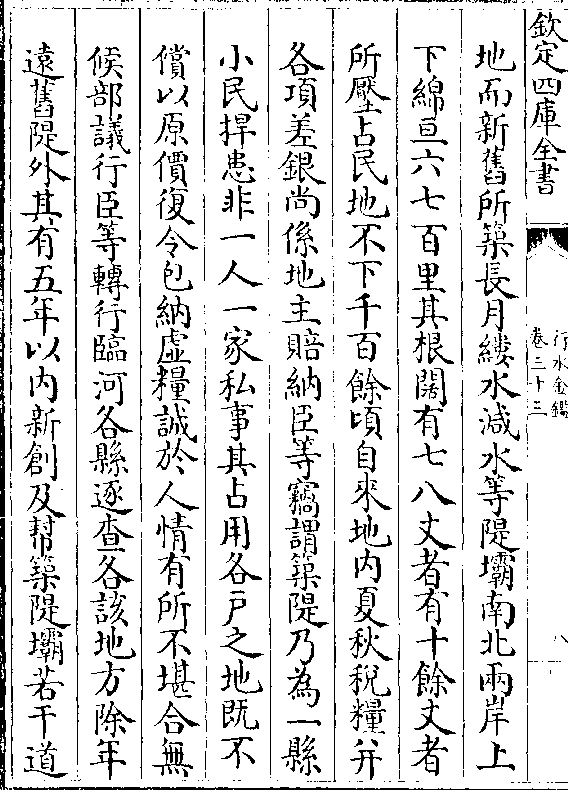 欽定四庫全書
行水金鑑
卷三十三
八
地而新舊所築長月縷水減水等隄壩南北兩岸上
下綿亘六七百里其根闊有七八丈者有十餘丈者
所壓占民地不下千百餘頃自來地内夏秋稅糧并
各項差銀尚係地主賠納臣等竊謂築隄乃為一縣
小民捍患非一人一家私事其占用各戸之地既不
償以原價復令包納虛糧誠於人情有所不堪合無
候部議行臣等轉行臨河各縣逐查各該地方除年
遠舊隄外其有五年以内新創及幇築隄壩若干道